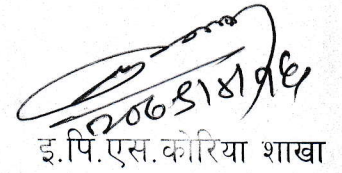 २०७९।४।१६
इ.पि.एस.कोरिया शाखा